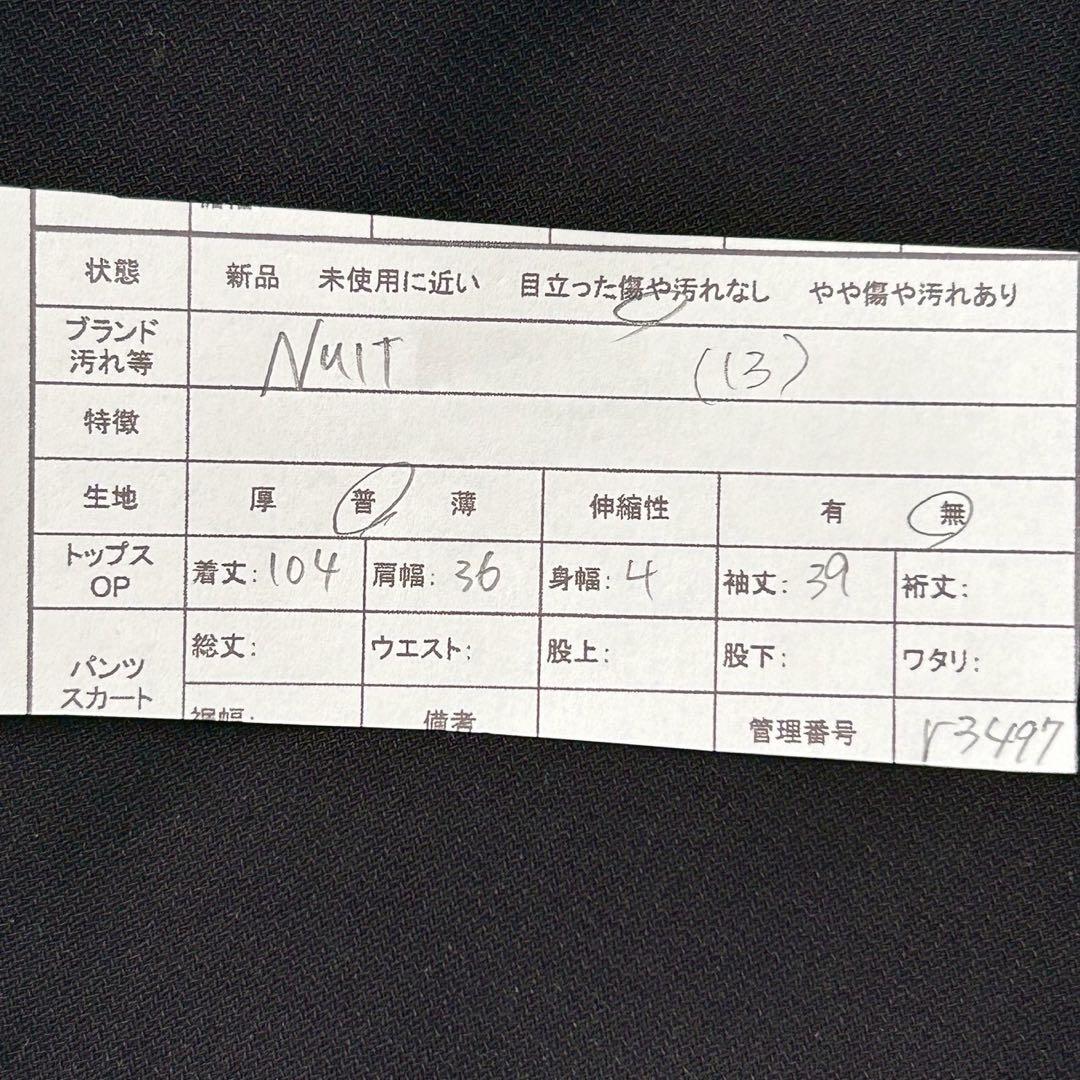 状態 新品 未使用に近い 目立った傷や汚れなし やや傷や汚れあり
ブランド
汚れ等 NUIT (13)
特徴
生地 厚 普 薄 伸縮性 有 無
トップス
OP 着丈:104 肩幅:36 身幅:4 袖丈:39 裄丈:
パンツ
スカート 総丈: ウエスト: 股上: 股下: ワタリ:
裾幅: 備考 管理番号 r3497